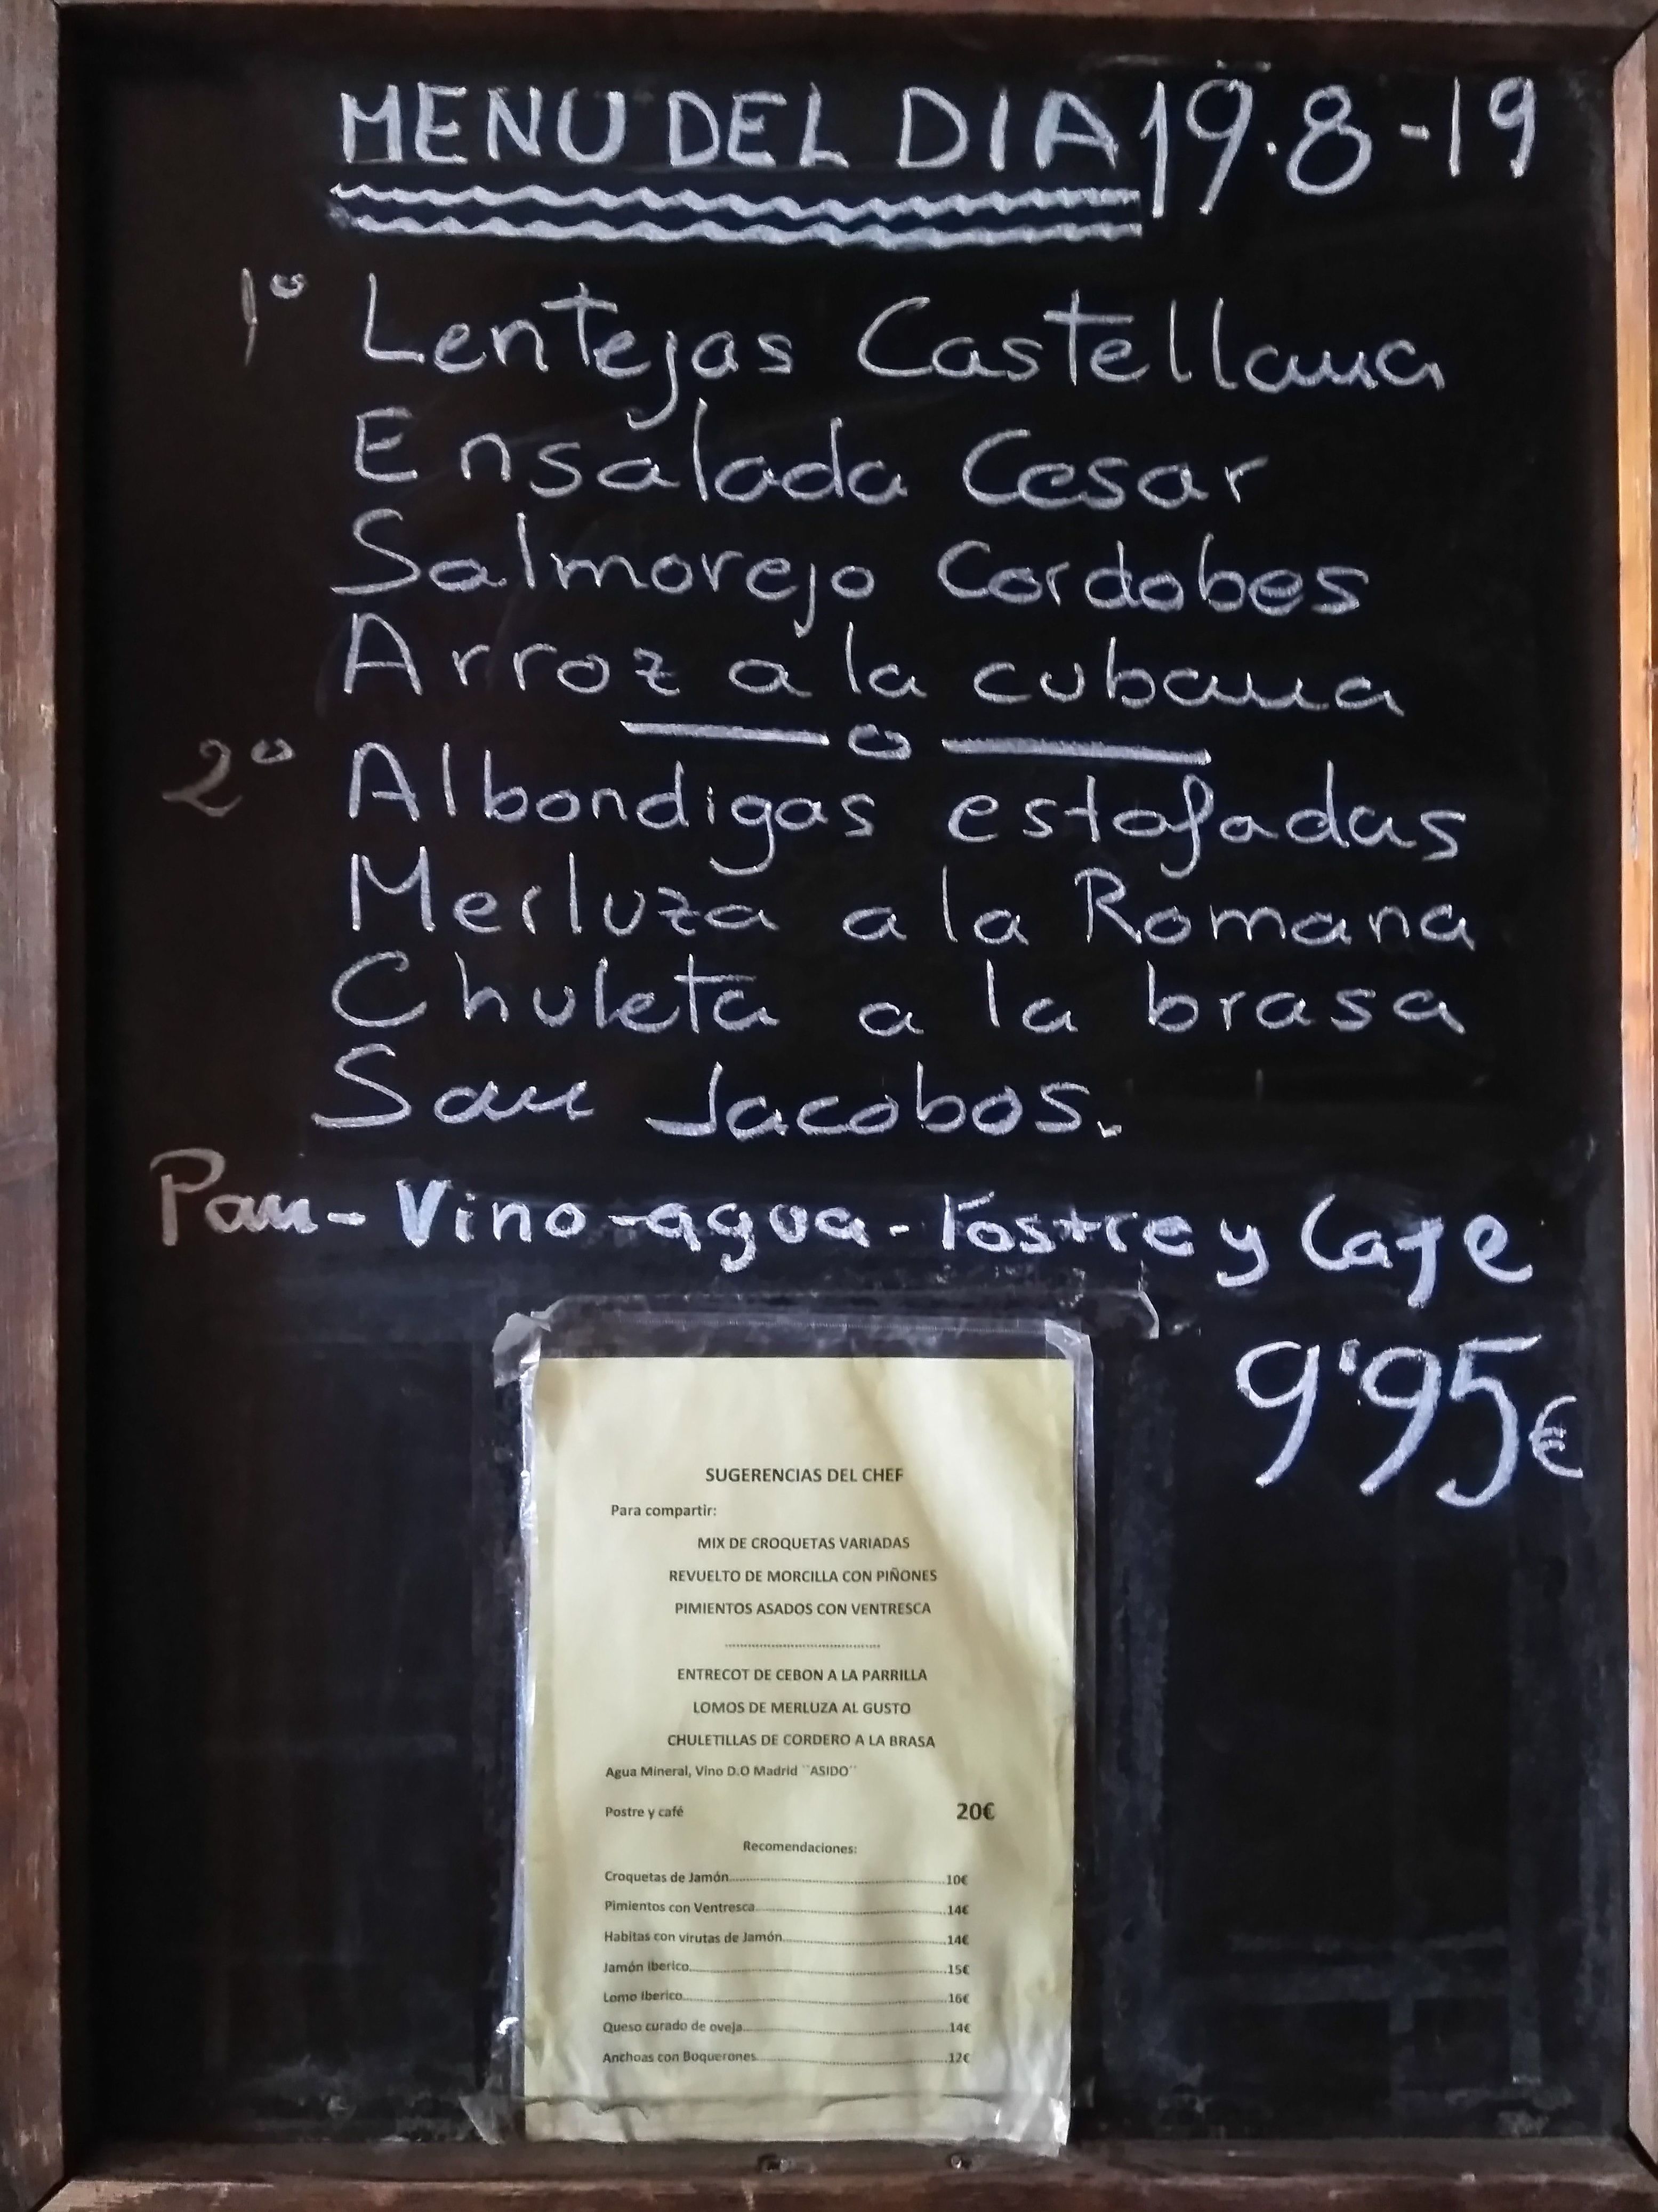 MENU DEL DIA 19.8-19
1º Lentejas Castellana
Ensalada Cesar
Salmorejo Cordobes
Arroz a la cubana
2º Albondigas estofadas
Merluza a la Romana
Chuleta a la brasa
San Jacobos.
Pan - Vino - agua - Postre y Cafe
9'95€
SUGERENCIAS DEL CHEF
Para compartir:
MIX DE CROQUETAS VARIADAS
REVUELTO DE MORCILLA CON PIÑONES
PIMIENTOS ASADOS CON VENTRESCA
ENTRECOT DE CEBON A LA PARRILLA
LOMOS DE MERLUZA AL GUSTO
CHULETILLAS DE CORDERO A LA BRASA
Agua Mineral, Vino D.O Madrid ¨ASIDO¨
Postre y café 20€
Recomendaciones:
Croquetas de Jamón....................10€
Pimientos con Ventresca....................14€
Habitas con virutas de Jamón....................14€
Jamón Iberico....................15€
Lomo Iberico....................16€
Queso curado de oveja....................14€
Anchoas con Boquerones....................12€